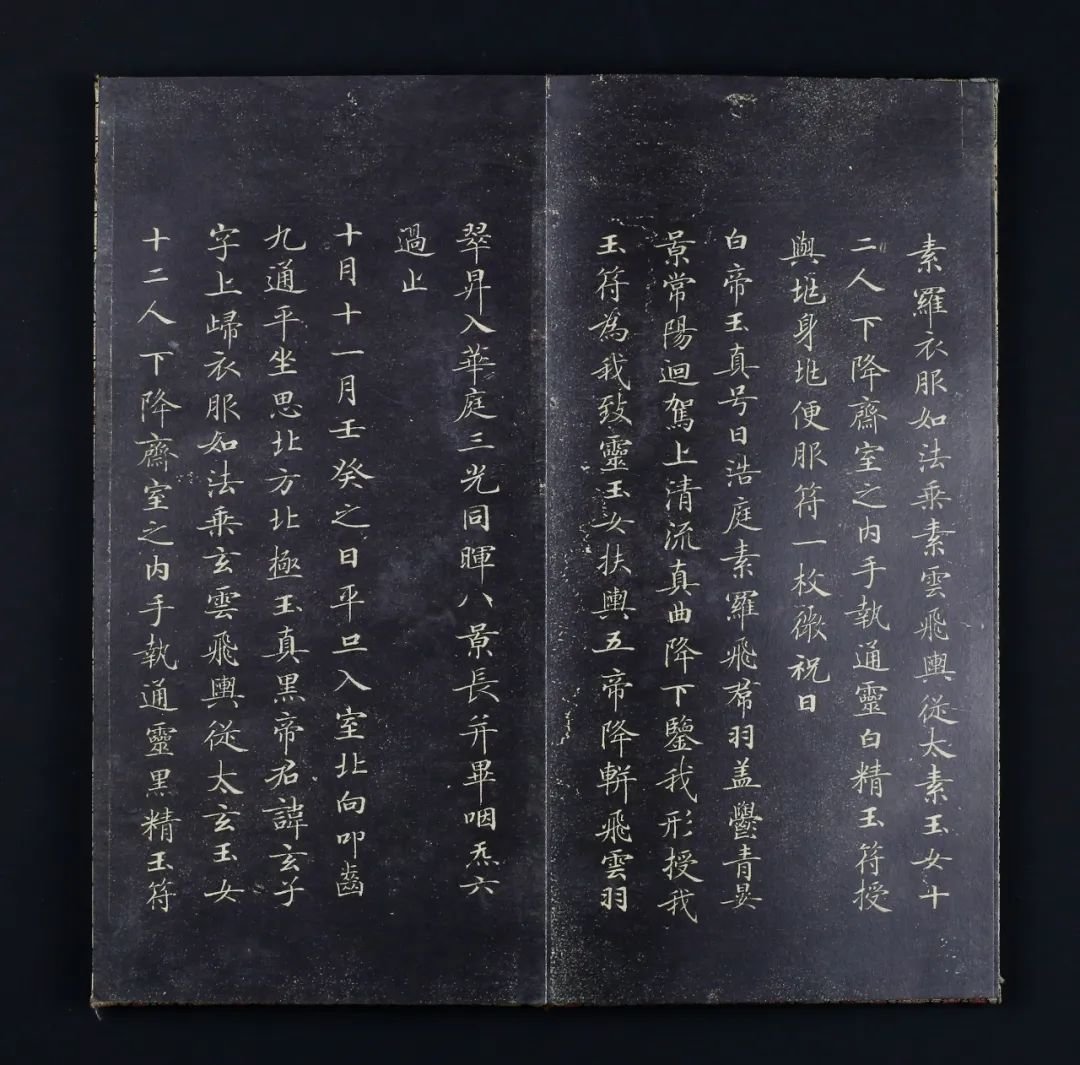 素羅衣服如法乘素雲飛輿從太素玉女十
二人下降齋室之内手執通靈白精玉符授
與兆身兆便服符一枚微祝曰
白帝玉真号曰浩庭素羅飛帬羽盖鬱青晏
景常陽迴駕上清流真曲降下鑒我形授我
玉符為我致靈玉女扶輿五帝降軿飛雲羽
翠昇入華庭三光同暉八景長并畢咽炁六
過止
十月十一月壬癸之日平旦入室北向叩齒
九通平坐思北方北極玉真黑帝君諱玄子
字上歸衣服如法乘玄雲飛輿從太玄玉女
十二人下降齋室之内手執通靈黑精玉符